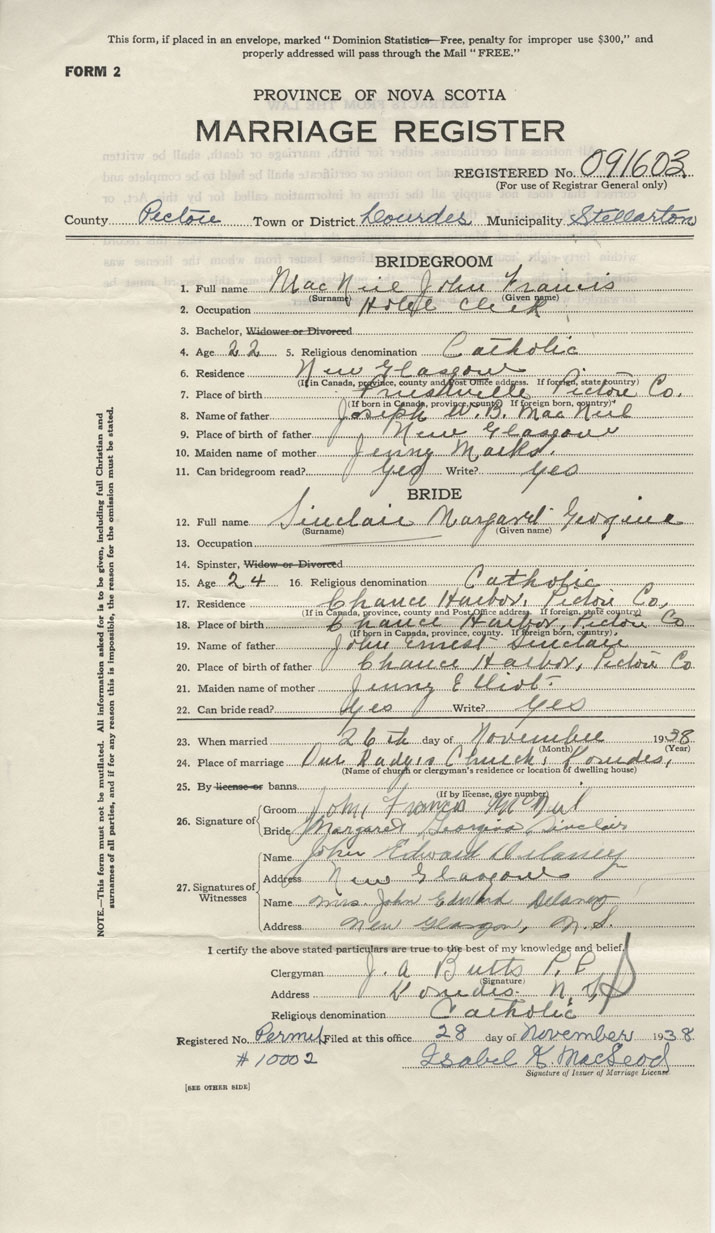 This form, if placed in an envelope, marked "Dominion Statistics—Free, penalty for improper use $300," and
properly addressed will pass through the Mail "FREE."
FORM 2
PROVINCE OF NOVA SCOTIA
MARRIAGE REGISTER
REGISTERED No. 091603
(For use of Registrar General only)
County Pictou Town or District Lourdes Municipality Stellarton
BRIDEGROOM
1. Full name MacNeil John Francis
(Surname) (Given name)
2. Occupation Hotel Clerk
3. Bachelor, Widower or Divorced
4. Age 22 5. Religious denomination Catholic
6. Residence New Glasgow
(If in Canada, province, county and Post Office address. If foreign, state country)
7. Place of birth Pictou Co.
(If born in Canada, province, county. If foreign born, country)
8. Name of father Joseph W. B. MacNeil
9. Place of birth of father New Glasgow
10. Maiden name of mother Jenny Marks.
11. Can bridegroom read? Yes Write? Yes
BRIDE
12. Full name Sinclair Margaret Georgina
(Surname) (Given name)
13. Occupation
14. Spinster, Widow or Divorced
15. Age 24 16. Religious denomination Catholic
17. Residence Chance Harbor, Pictou Co,
(If in Canada, province, county and Post Office address. If foreign, state country)
18. Place of birth Chance Harbor, Pictou Co
(If born in Canada, province, county. If foreign born, country)
19. Name of father John Ernest Sinclair
20. Place of birth of father Chance Harbor, Pictou Co
21. Maiden name of mother Jenny Elliot.
22. Can bride read? Yes Write? Yes
23. When married 26th day of November 1938
(Month) (Year)
24. Place of marriage Our Lady's Church, Lourdes,
(Name of church or clergyman's residence or location of dwelling house)
25. By license or banns
(If by license, give number)
26. Signature of
Groom John Francis McNeil
Bride Margaret Georgina Sinclair
27. Signatures of Witnesses
Name John Edward Delaney
Address New Glasgow
Name Mrs. John Edward Delaney
Address New Glasgow, N.S.
I certify the above stated particulars are true to the best of my knowledge and belief.
Clergyman J. A Butts P. P.
(Signature)
Address Lourdes. N.S.
Religious denomination Catholic
Registered No. Permit Filed at this office 28 day of November 1938
#10002 Isabel K. MacLeod
Signature of Issuer of Marriage License
[SEE OTHER SIDE]
NOTE.—This form must not be mutilated. All information asked for is to be given, including full Christian and
surnames of all parties, and if for any reason this is impossible, the reason for the omission must be stated.